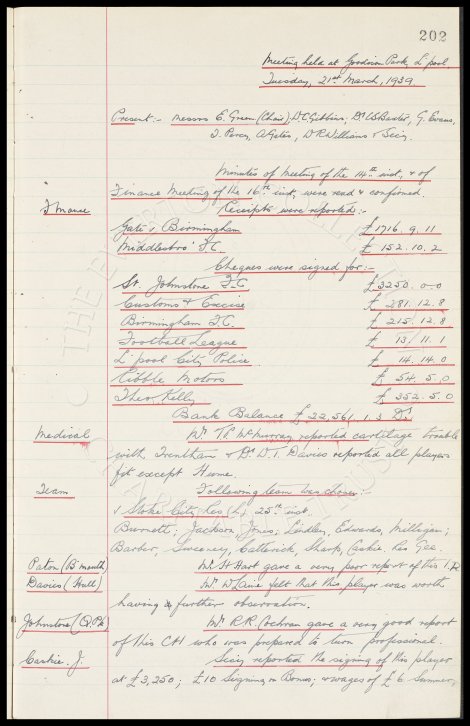 202
Meeting held at Goodison Park, L'pool
Tuesday, 21st March, 1939.
Present:- Messrs E. Green (Chair), W.C. Gibbins, Dr. C.S. Baxter, G. Evans,
J. Percy, A. Gates, W.R. Williams & Secy.
Minutes of Meeting of the 14th inst, & of
Finance Meeting of the 16th inst, were read & confirmed.
Finance
Receipts were reported:-
Gate v Birmingham £1716. 9. 11
Middlesbro' F.C. £ 152. 10. 2
Cheques were signed for:-
St. Johnstone F.C. £3250. 0. 0
Customs & Excise £ 281. 12. 8
Birmingham F.C. £ 215. 12. 8
Football League £ 13. 11. 1
L'pool City Police £ 14. 14. 0
Ribble Motors £ 54. 5. 0
Theo. Kelly £ 352. 5. 0
Bank Balance £22,561. 1. 3 Dr.
Medical
Mr. Th. McMurray reported cartilage trouble
with Trentham & Dr. W.T. Davies reported all players
fit except Hume.
Team
Following team was chosen:-
v Stoke City Res (h) 25th inst.
Burnett; Jackson, Jones; Lindley, Edwards, Milligan;
Barber, Sweeney, Catterick, Sharp, Caskie. Res Gee.
Paton (B'mouth)
Mr. H. Hart gave a very poor report of this
Davies (Hull)
Mr. W. Laine felt that this player was worth
having a further observation.
Johnstone (Q.Pk)
Mr. R.R. Cochran gave a very good report
of this CH who was prepared to turn professional.
Caskie. J.
Secy reported the signing of this player
at £3,250; £10 Signing on Bonus; & wages of £6 Summer,